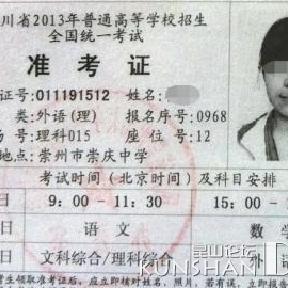 川省2013年普通高等学校招生
全国统一考试
准考证
证号:011191512 姓名:
类:外语(理) 报名序号:0968
场号:理科015 座位号:12
地点:崇州市崇庆中学
考试时间(北京时间)及科目安排
日 9:00-11:30 15:00
日 语文 数学
日 文科综合/理科综合 外
昆山论坛
KUNSHAN